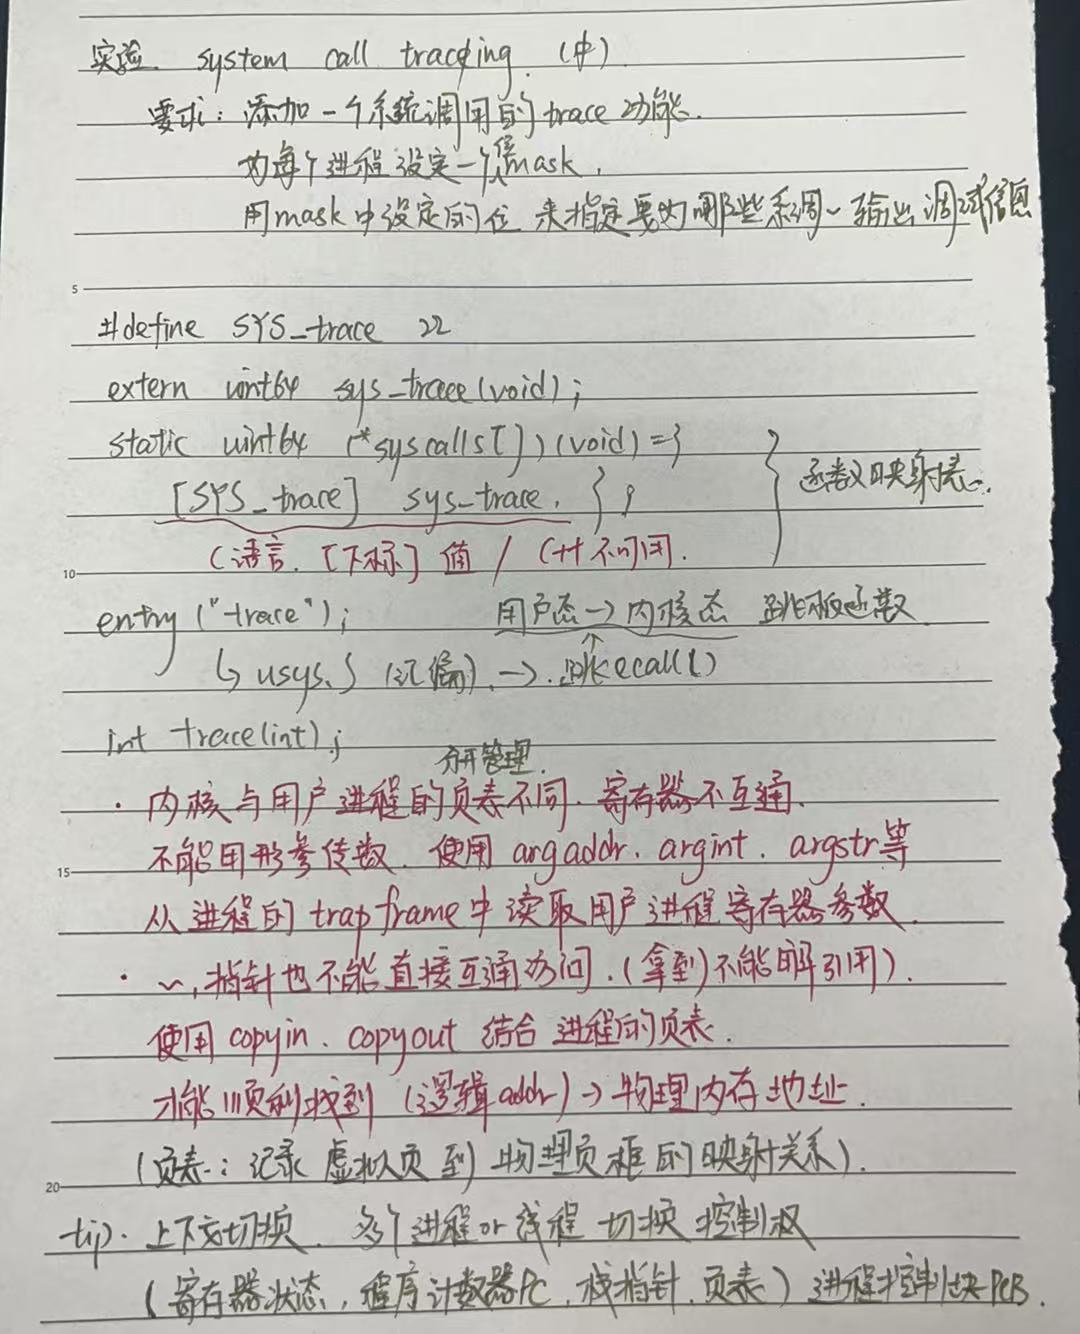 实验. system call tracing. (中)
要求: 添加一个系统调用的trace功能.
为每个进程设定一个位mask,
用mask中设定的位 来指定要为哪些系调~输出调试信息
5
#define SYS_trace 22
extern uint64 sys_trace(void);
static uint64 (*syscalls[])(void)={
[SYS_trace] sys_trace, };
函数映射表.
C语言. [下标] 值 / C++不可用.
10
entry("trace"); 用户态→内核态 跳板函数
↳ usys.S (汇编). → 跳ecall()
int trace(int);
分开管理.
· 内核与用户进程的页表不同. 寄存器不互通.
不能用形参传数. 使用 argaddr. argint. argstr等
15
从进程的trapframe中读取用户进程寄存器参数.
· ~, 指针也不能直接互通访问. (拿到)不能解引用).
使用 copyin. copyout 结合 进程的页表.
才能顺利找到 (逻辑addr)→物理内存地址.
(页表: 记录 虚拟页到 物理页框的映射关系).
20
tip. 上下文切换. 多个进程or线程 切换 控制权
(寄存器状态, 程序计数器PC, 栈指针, 页表) 进程控制块PCB.